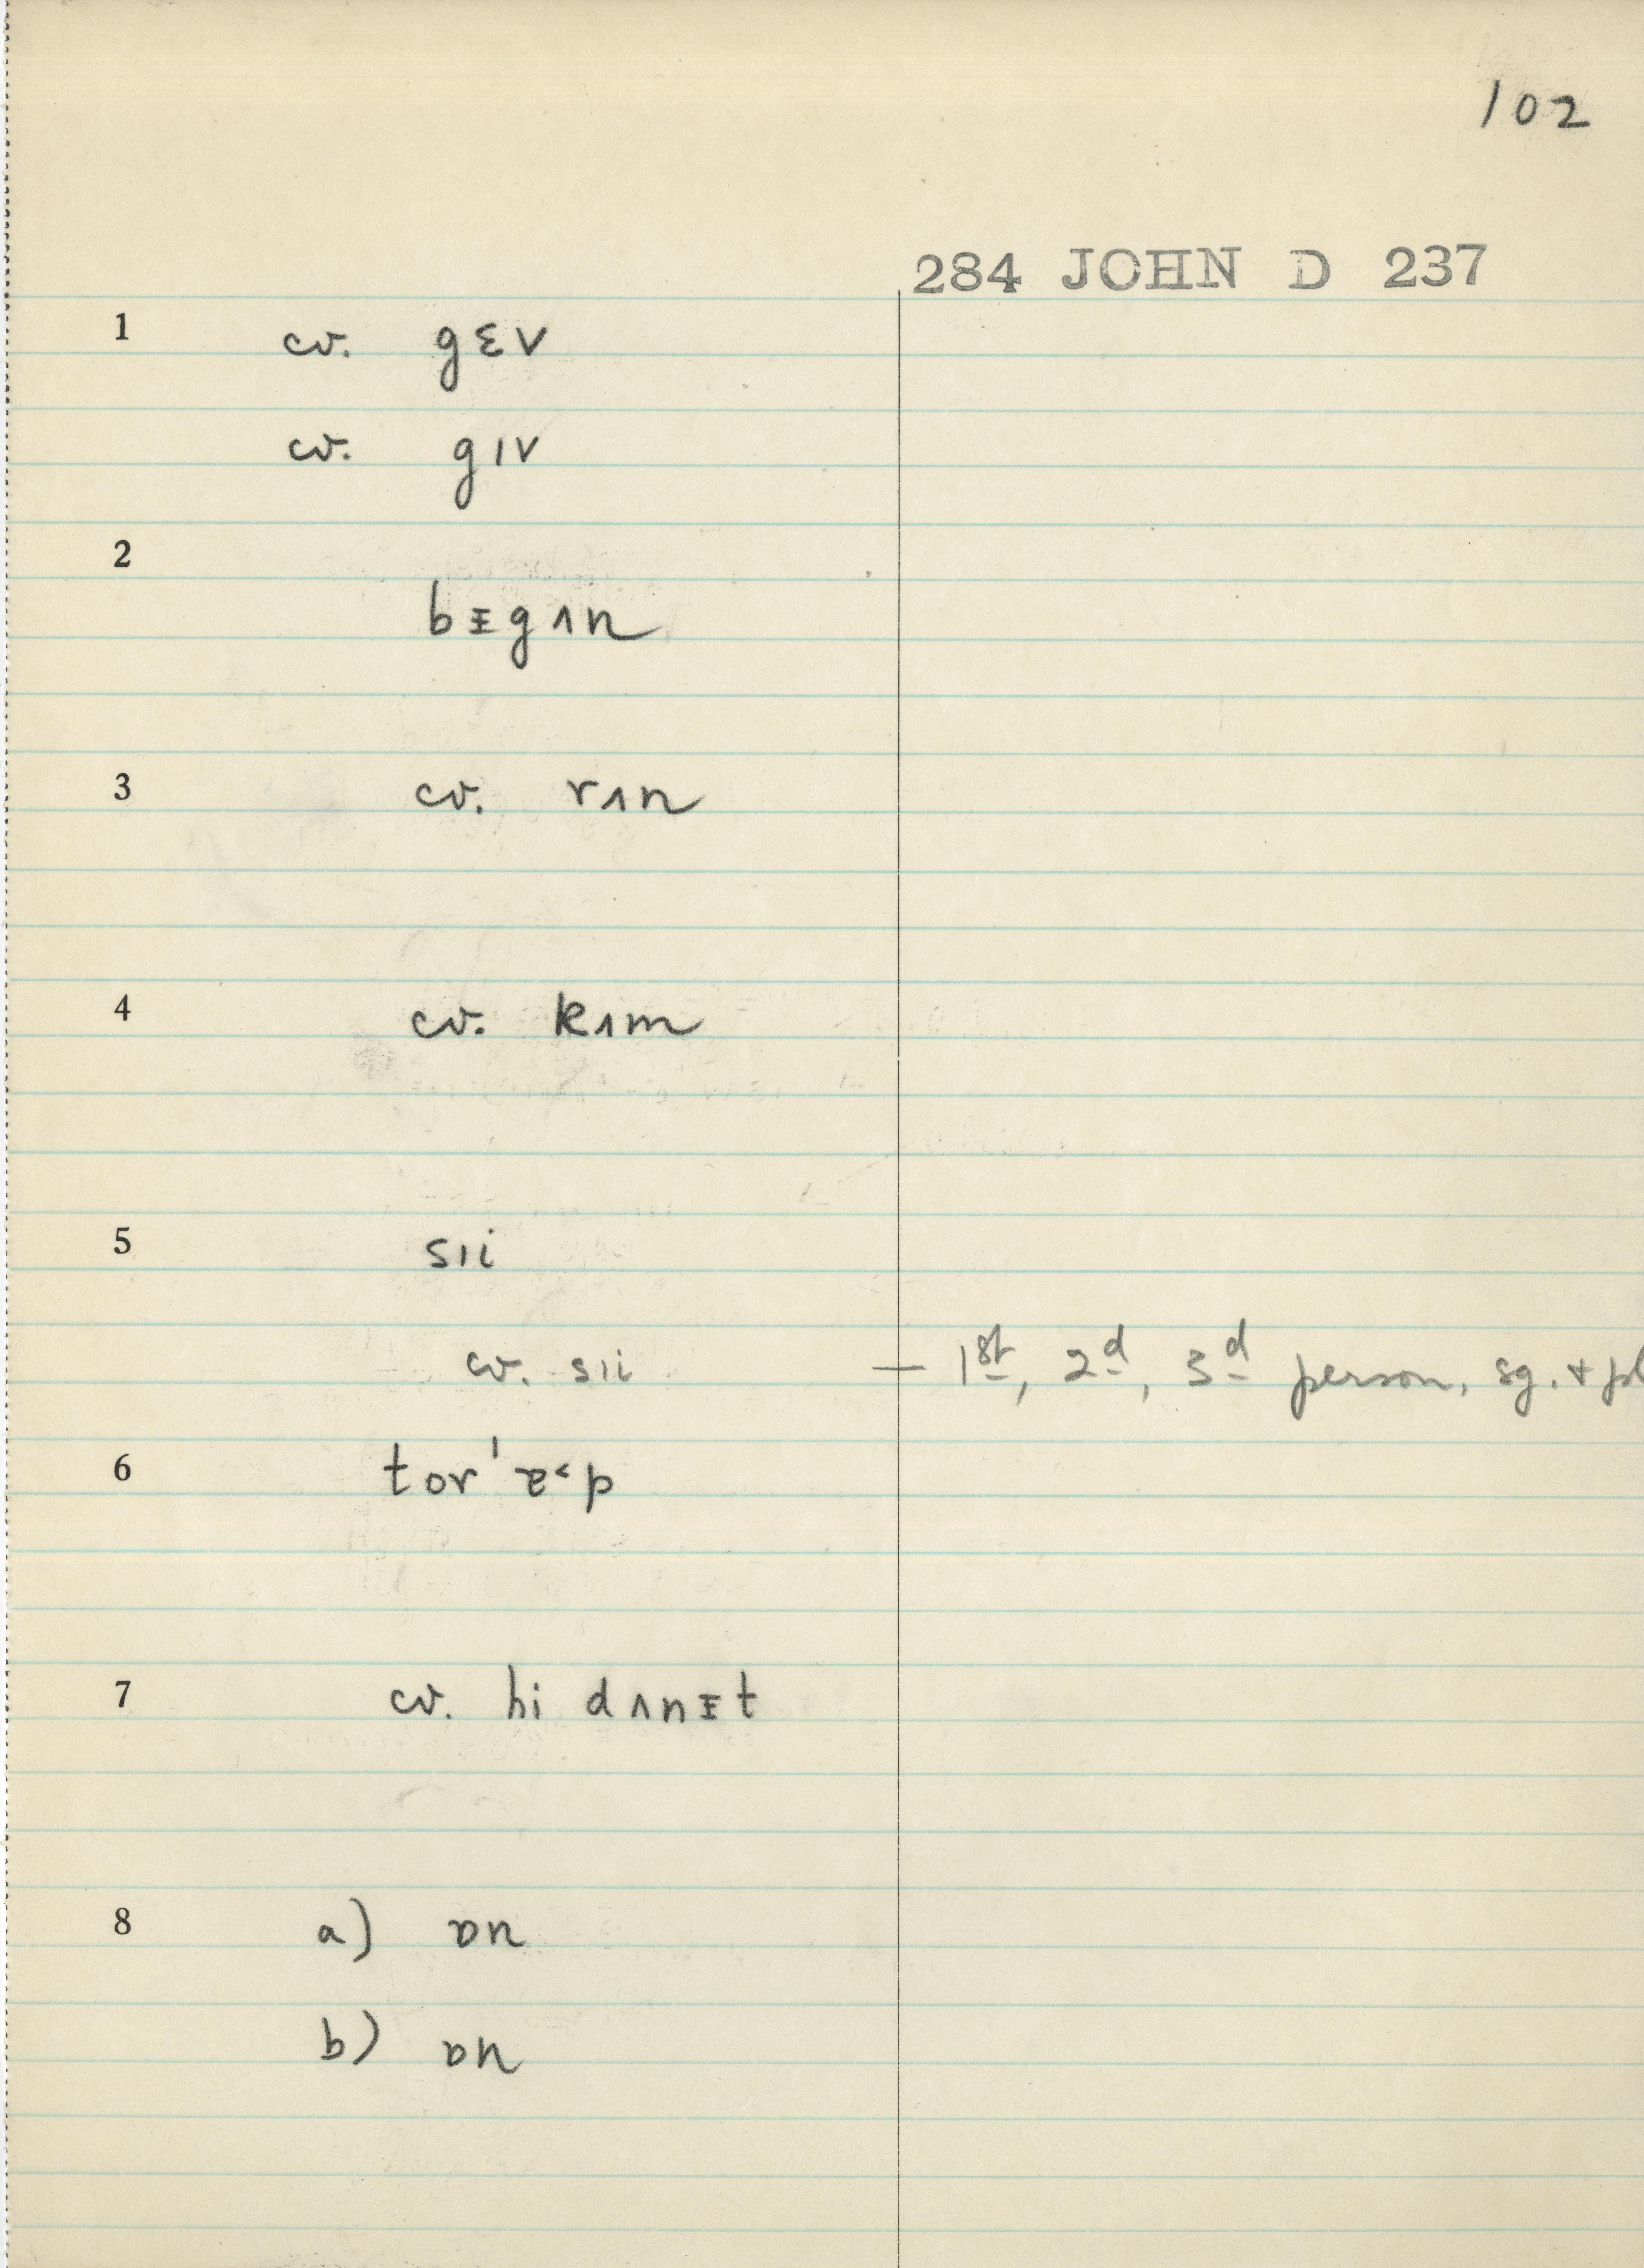 102
284 JOHN D 237
1 cv. gɛv
cv. gɪv
2
bᵻgʌn
3 cv. rʌn
4 cv. kʌm
5 sɪi
cv. sɪi — 1st, 2d, 3d person, sg. + pl
6
7 cv. hi dʌnᵻt
8 a) ɒn
b) ɒn